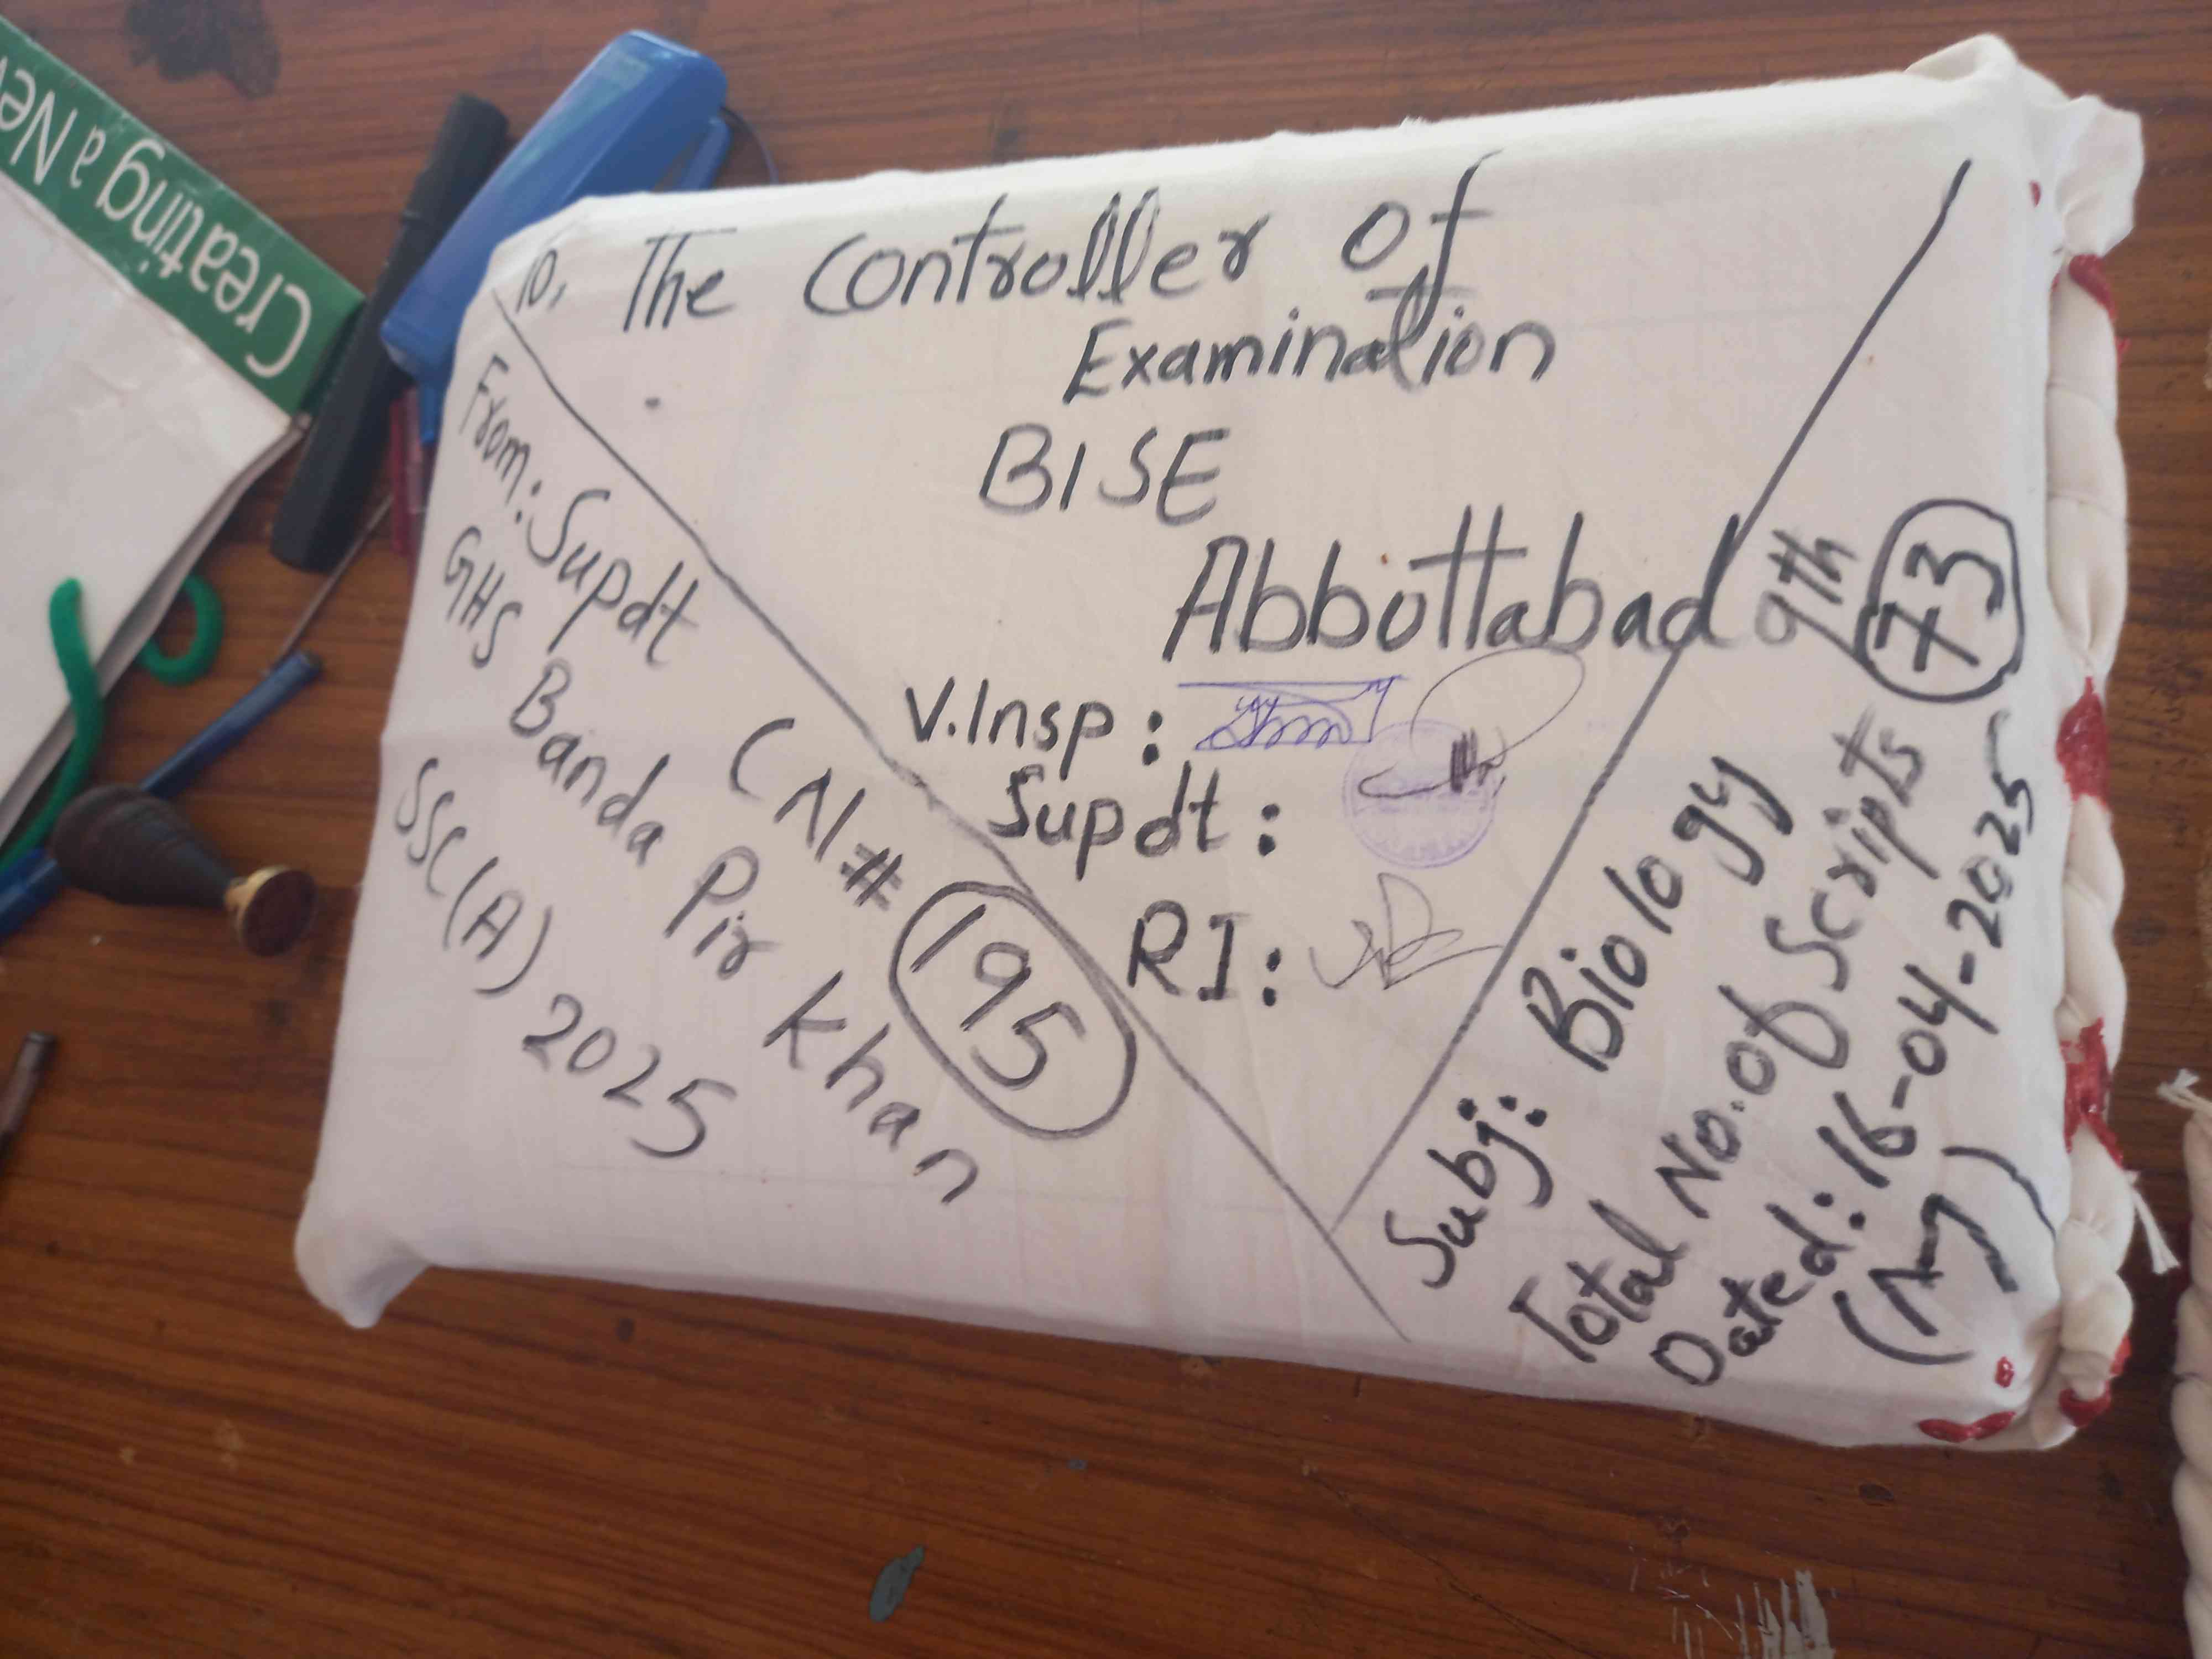 To, The Controller of
Examination
BISE
Abbottabad
V.Insp:
Supdt:
RI:
From: Supdt
GHS Banda Pir Khan
CN# 195
SSC(A) 2025
9th
Subj: Biology
Total No. of Scripts 73
Dated: 16-04-2025
Creating a Ne